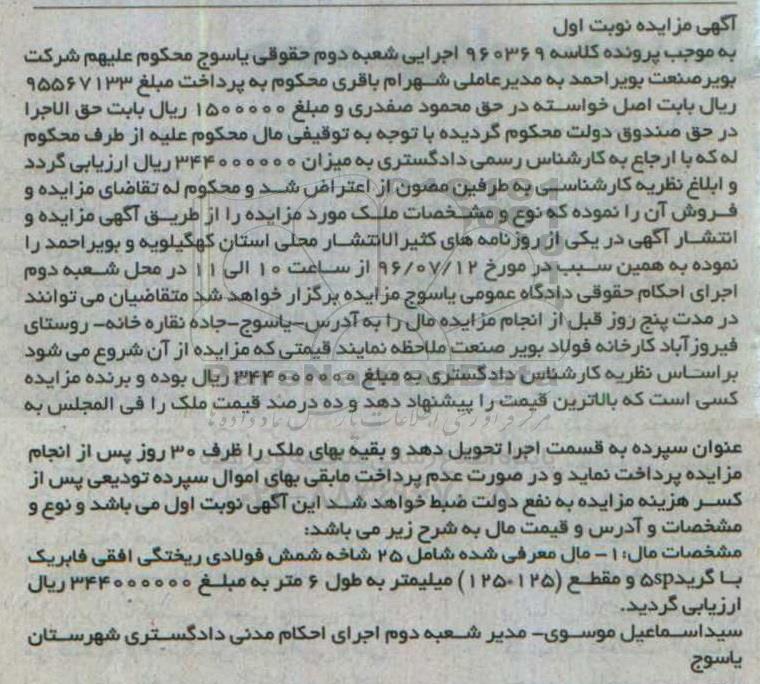 آگهی مزایده نوبت اول
به موجب پرونده کلاسه ۹۶۰۳۶۹ اجرایی شعبه دوم حقوقی یاسوج محکوم علیهم شرکت
بویرصنعت بویراحمد به مدیرعاملی شهرام باقری محکوم به پرداخت مبلغ ۹۵۵۶۷۱۳۳
ریال بابت اصل خواسته در حق محمود صفدری و مبلغ ۱۵۰۰۰۰۰ ریال بابت حق الاجرا
در حق صندوق دولت محکوم گردیده با توجه به توقیفی مال محکوم علیه از طرف محکوم
له که با ارجاع به کارشناس رسمی دادگستری به میزان ۳۴۴۰۰۰۰۰۰ ریال ارزیابی گردد
و ابلاغ نظریه کارشناسی به طرفین مصون از اعتراض شد و محکوم له تقاضای مزایده و
فروش آن را نموده که نوع و مشخصات ملک مورد مزایده را از طریق آگهی مزایده و
انتشار آگهی در یکی از روزنامه های کثیرالانتشار محلی استان کهگیلویه و بویراحمد را
نموده به همین سبب در مورخ ۹۶/۰۷/۱۲ از ساعت ۱۰ الی ۱۱ در محل شعبه دوم
اجرای احکام حقوقی دادگاه عمومی یاسوج مزایده برگزار خواهد شد متقاضیان می توانند
در مدت پنج روز قبل از انجام مزایده مال را به آدرس-یاسوج-جاده نقاره خانه- روستای
فیروزآباد کارخانه فولاد بویر صنعت ملاحظه نمایند قیمتی که مزایده از آن شروع می شود
براساس نظریه کارشناس دادگستری به مبلغ ۳۴۴۰۰۰۰۰۰ ریال بوده و برنده مزایده
کسی است که بالاترین قیمت را پیشنهاد دهد و ده درصد قیمت ملک را فی المجلس به
عنوان سپرده به قسمت اجرا تحویل دهد و بقیه بهای ملک را ظرف ۳۰ روز پس از انجام
مزایده پرداخت نماید و در صورت عدم پرداخت مابقی بهای اموال سپرده تودیعی پس از
کسر هزینه مزایده به نفع دولت ضبط خواهد شد این آگهی نوبت اول می باشد و نوع و
مشخصات و آدرس و قیمت مال به شرح زیر می باشد:
مشخصات مال:۱- مال معرفی شده شامل ۲۵ شاخه شمش فولادی ریختگی افقی فابریک
با گرید۵sp و مقطع (۱۲۵*۱۲۵) میلیمتر به طول ۶ متر به مبلغ ۳۴۴۰۰۰۰۰۰ ریال
ارزیابی گردید.
سیداسماعیل موسوی- مدیر شعبه دوم اجرای احکام مدنی دادگستری شهرستان
یاسوج